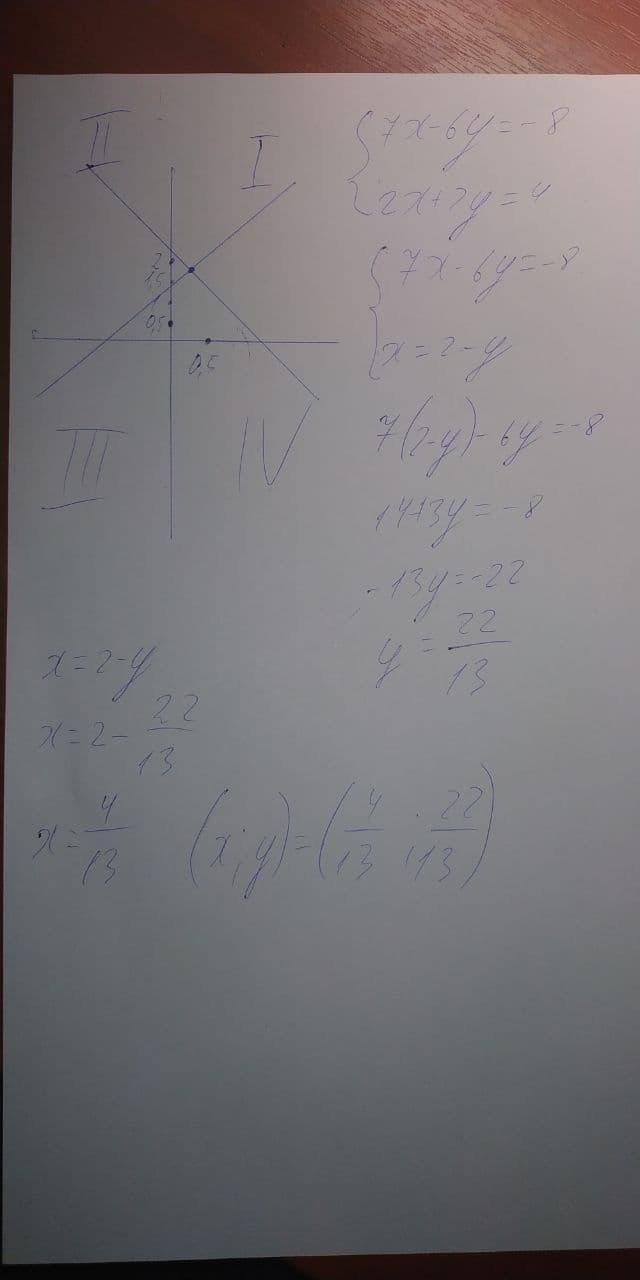 II
I
2
1,5
1
0,5
0,5
III
IV
7x-6y=-8
2x+2y=4
7x-6y=-8
x=2-y
7(2-y)-6y=-8
14-13y=-8
-13y=-22
y=22/13
x=2-y
x=2-22/13
x=4/13
(x;y)=(4/13;22/13)